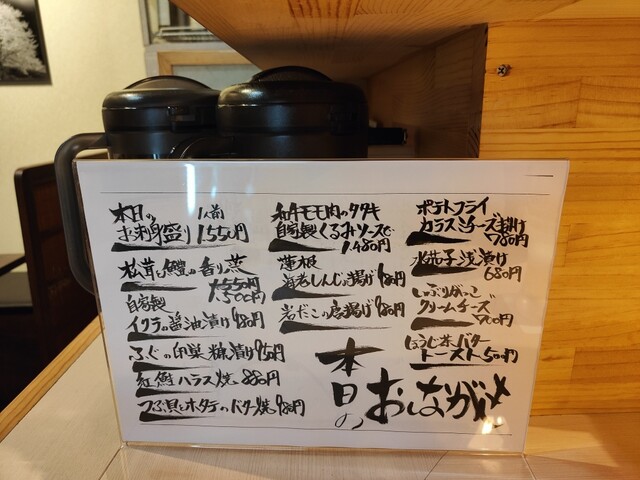 本日の
お刺身盛り 1人前 1550円
松茸と鱧の香り蒸
1,500円
自家製
イクラの醤油漬け 980円
ふぐの卵巣 糠漬け 950円
紅鮭ハラス焼 880円
つぶ貝とホタテのバター焼 980円
和牛モモ肉のタタキ
自家製くるみソースで
1,480円
蓮根
海老しんじょ揚げ 980円
岩だこの唐揚げ 980円
ポテトフライ
カラスミチーズ掛け
780円
水茄子浅漬け
680円
いぶりがっこ
クリームチーズ
700円
ほうじ茶バター
トースト 500円
本日の
おしながき